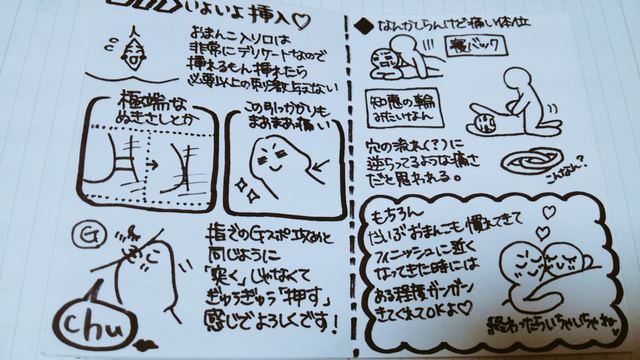 いよいよ挿入♡
おまんこ入り口は
非常にデリケートなので
挿れるもん挿れたら
必要以上の刺激与えない
極端な
ぬきさしとか
この引っかかりも
まあまあ痛い
G
指でのGスポ攻めと
同じように
「突く」じゃなくて
ぎゅうぎゅう「押す」
感じでよろしくです!
chu
◆なんかしらんけど痛い体位
寝バック
知恵の輪
みたいなもん
穴の流れ(?)に
逆らってるような痛さ
だと思われる。
こんなん?
もちろん
だいぶおまんこも慣れてきて
フィニッシュに近く
なってきた時には
ある程度ガンガン
きてくれてOKよ♡
終わったらいちゃいちゃね♡